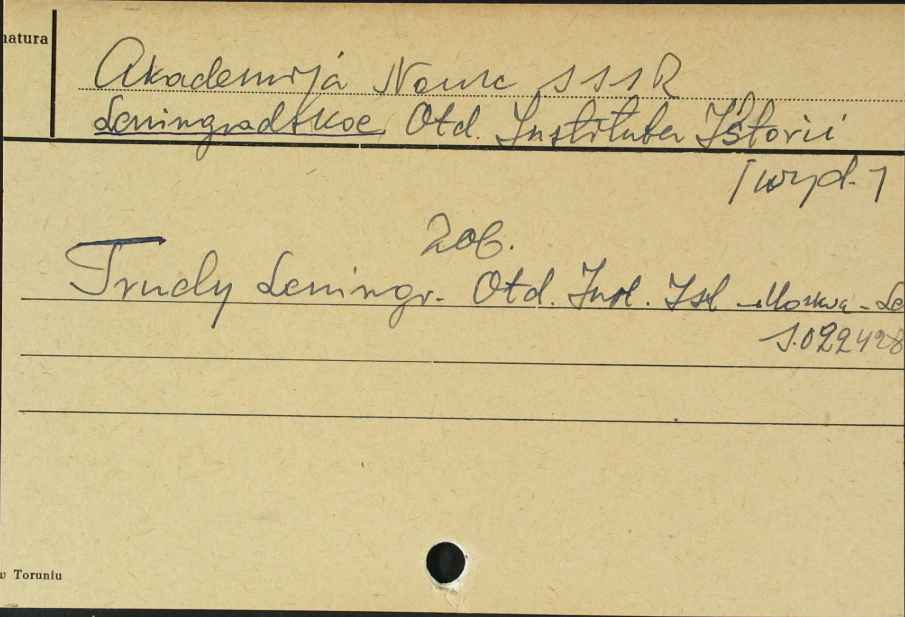 natura
Akademija Nauk SSSR
Leningradskoe Otd. Instituta Istorii
[wyd.]
zob.
Trudy Leningr. Otd. Inst. Ist Moskva-Le
S.022428
w Toruniu